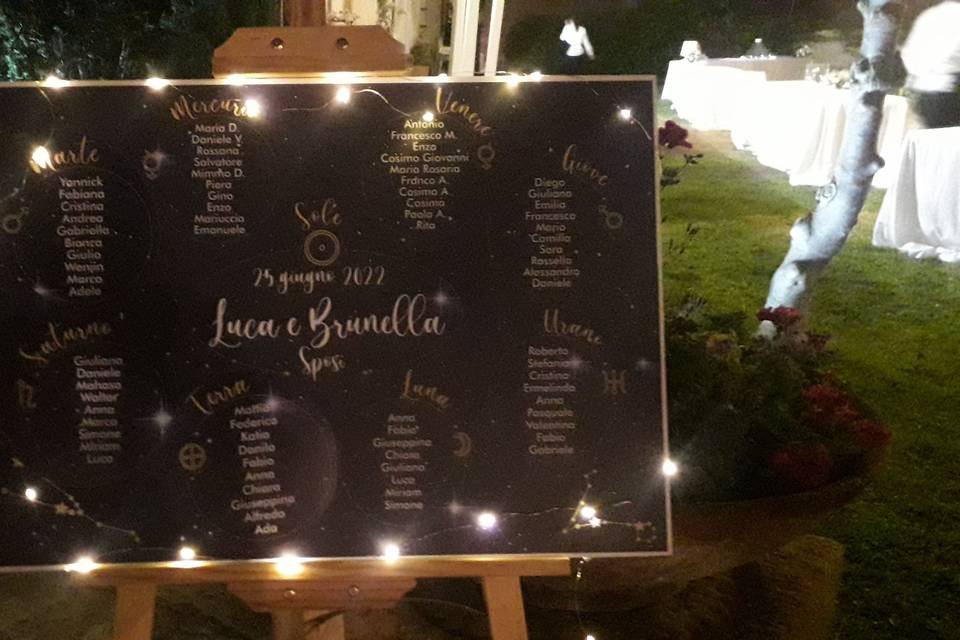 Marte
Yannick
Fabiana
Cristina
Andrea
Gabriella
Bianca
Giulia
Wenjin
Marco
Adele
Mercurio
Maria D.
Daniele V.
Rossana
Salvatore
Mimmo D.
Piera
Gino
Enzo
Mariuccia
Emanuele
Venere
Antonio
Francesco M.
Enzo
Cosimo Giovanni
Maria Rosaria
Franco A.
Cosimo A.
Cosimo
Paola A.
Rita
Giove
Diego
Giuliana
Emilia
Francesco
Mario
Camilla
Sara
Rossella
Alessandro
Daniele
Sole
25 giugno 2022
Luca e Brunella
Sposi
Saturno
Giuliana
Daniele
Walter
Anna
Marco
Simone
Miriam
Luca
Terra
Federico
Katia
Danilo
Fabio
Anna
Chiara
Giuseppina
Alfredo
Ada
Luna
Anna
Fabio
Giuseppina
Chiara
Giuliana
Luca
Miriam
Simone
Urano
Roberto
Stefania
Cristina
Ermelinda
Anna
Pasquale
Valentina
Fabio
Gabriele